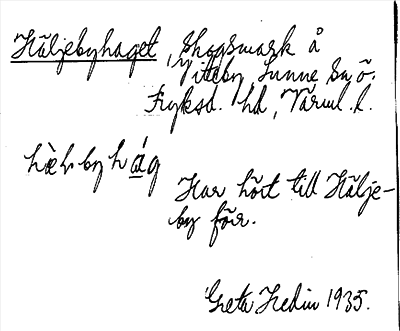 Häljebyhaget, Skogsmark å
Yiteby, Sunne sn ö.
Fryksd. hd, Värml. l.
hälbyhág
Har hört till Hälje-
by förr.
Greta Hedin 1935.